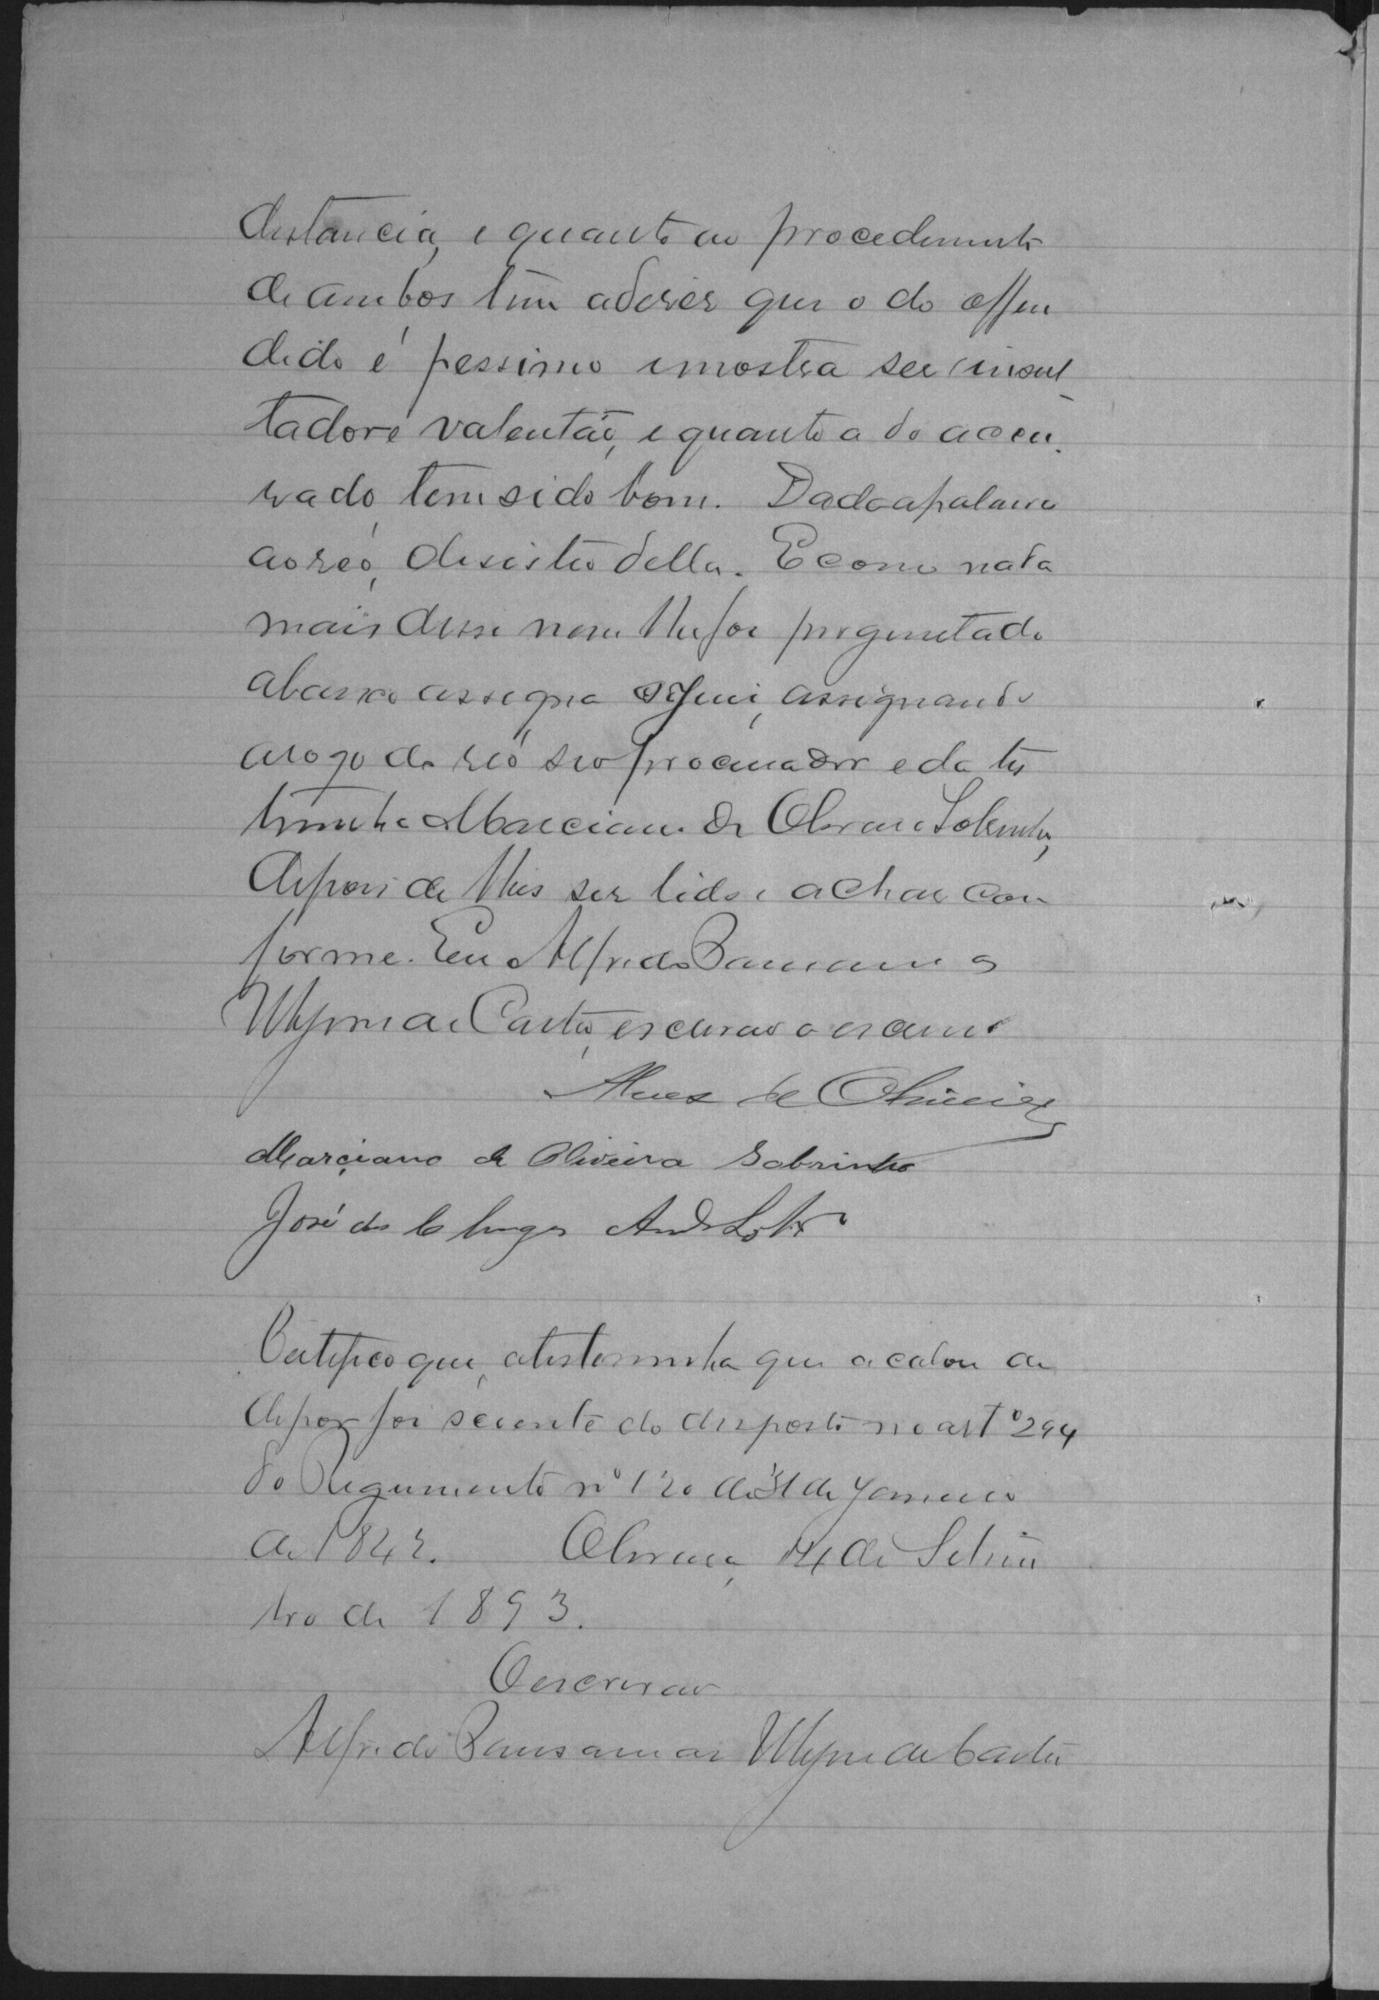 distancia, e quanto ao procedimento
de ambos tem a diser que o do offen
dido é pessimo e mostra ser insul
tador e valentão, e quanto a do accu
sado tem sido bom. Dada a palavra
ao réo, desistio della. E como nada
mais disse nem lhe foi perguntado
abaixo assigna o Juiz, assignando
a rogo do réo seo procurador e da tes
timunha Marciano de Oliveira Sobrinho,
depois de lhes ser lido e achar con
forme. Eu Alfredo
de Castro, escrivão o escrevi
Alves de Oliveira
Marciano de Oliveira Sobrinho
José das Chagas
Certifico que a testemunha que acabou de
depor foi sciente do disposto no artº 294
do Regumento nº 120 de 31 de Janeiro
de 1842. 14 de Setem
bro de 1893.
O escrivão
Alfredo de Castro